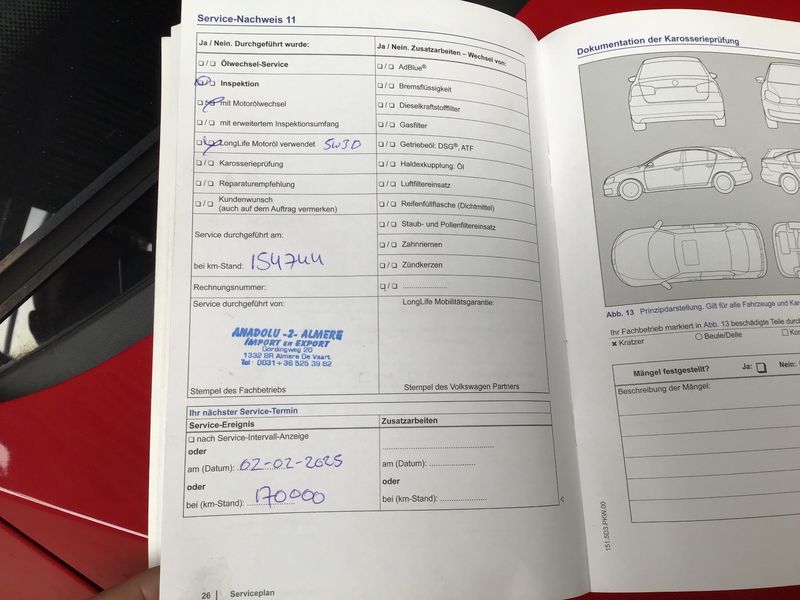 Service-Nachweis 11
Ja / Nein. Durchgeführt wurde:
❏ / ❏ Ölwechsel-Service
❏ / ❏ Inspektion
❏ / ❏ mit Motorölwechsel
❏ / ❏ mit erweitertem Inspektionsumfang
❏ / ❏ LongLife Motoröl verwendet 5W30
❏ / ❏ Karosserieprüfung
❏ / ❏ Reparaturempfehlung
❏ / ❏ Kundenwunsch
(auch auf dem Auftrag vermerken)
Service durchgeführt am:
bei km-Stand: 154744
Rechnungsnummer:
Service durchgeführt von:
ANADOLU -2- ALMERE
IMPORT en EXPORT
Gordingweg 20
1332 BR Almere De Vaart
Tel · 0031 + 36 525 39 82
Stempel des Fachbetriebs
Ja / Nein. Zusatzarbeiten – Wechsel von:
❏ / ❏ AdBlue®
❏ / ❏ Bremsflüssigkeit
❏ / ❏ Dieselkraftstofffilter
❏ / ❏ Gasfilter
❏ / ❏ Getriebeöl: DSG®, ATF
❏ / ❏ Haldexkupplung: Öl
❏ / ❏ Luftfiltereinsatz
❏ / ❏ Reifenfüllflasche (Dichtmittel)
❏ / ❏ Staub- und Pollenfiltereinsatz
❏ / ❏ Zahnriemen
❏ / ❏ Zündkerzen
❏ / ❏ ....................
LongLife Mobilitätsgarantie:
Stempel des Volkswagen Partners
Ihr nächster Service-Termin
Service-Ereignis
❏ nach Service-Intervall-Anzeige
oder
am (Datum): 02-02-2025
oder
bei (km-Stand): 170000
Zusatzarbeiten
am (Datum): ....................
oder
bei (km-Stand): ....................
26 | Serviceplan
Dokumentation der Karosserieprüfung
Abb. 13 Prinzipdarstellung. Gilt für alle Fahrzeuge und
Ihr Fachbetrieb markiert in Abb. 13 beschädigte Teile
✕ Kratzer ○ Beule/Delle ❏
Mängel festgestellt? Ja: ❏ Nein:
Beschreibung der Mängel:
151.5D3.PKW.00